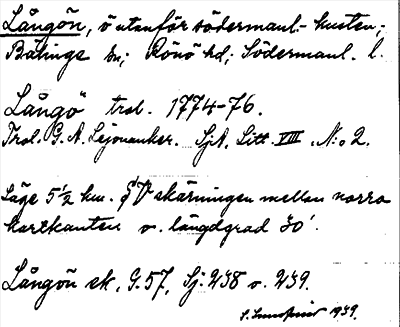 Långön, ö utanför södermanl.-kusten;
Bälinge sn; Rönö hd; Södermanl. l.
Långö trol. 1774-76.
Trol. G. A. Lejonanker. SjA, Litt. VIII. N:o 2.
Läge 5 1/2 km. SV skärningen mellan norra
kartkanten o. längdgrad 30'.
Långön ek. G.57, Sj. 238 o. 239.
S. 1939.